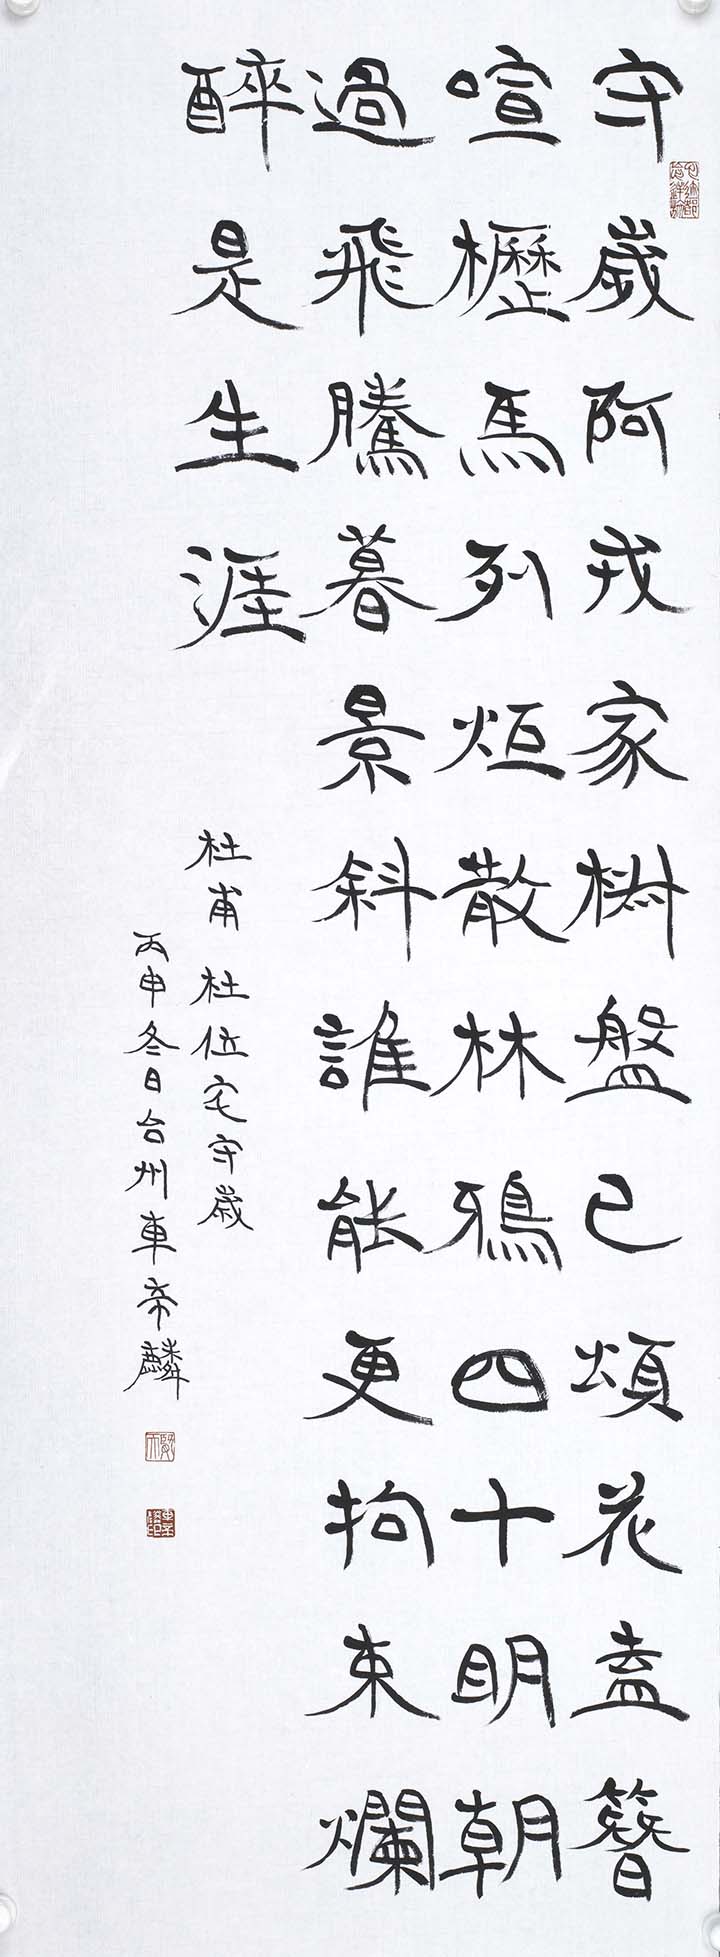 守歲阿戎家樹盤已頌花盍簪
喧櫪馬列炬散林鴉四十明朝
過飛騰暮景斜誰能更拘束爛
醉是生涯
杜甫 杜位宅守歲
丙申冬日台州車帝麟